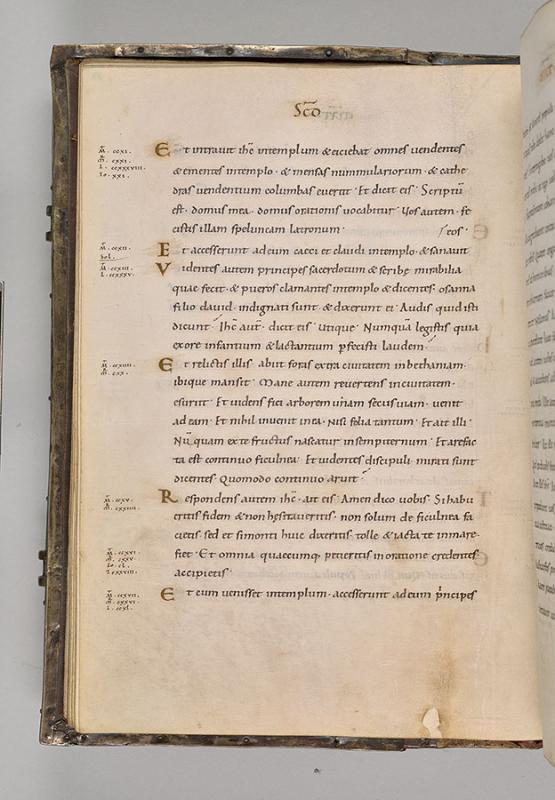 Sc̄o
Et intrauit ih̄c intemplum & eiciebat omnes uendentes
& ementes intemplo · & mensas nummulariorum · & cathe
dras uendentium columbas euertit · Et dicit eis · Scriptū
est · domus mea domus orationis uocabitur · Uos autem · fe
cistis illam speluncam latronum · / eos ·
Et accesserunt ad eum caeci et claudi intemplo · & sanauit
Videntes autem principes sacerdotum & scribe mirabilia
quae fecit · & pueros clamantes intemplo & dicentes · osanna
filio dauid · indignati sunt · & dixerunt ei · Audis quid isti
dicunt · Ih̄c aut̄ · dicit eis · Utique · Numquā legistis quia
exore infantium & lactantium perfecisti laudem ·
Et relictis illis · abiit foris extra ciuitatem inbethaniam ·
ibique mansit · Mane autem reuertens inciuitatem ·
esuriit · Et uidens fici arborem unam secus uiam · uenit
ad eam · Et nihil inuenit inea · nisi folia tantum · Et ait illi ·
Nūquam exte fructus nascatur insempiternum · Et arefac
ta est continuo ficulnea · Et uidentes discipuli · mirati sunt
dicentes · Quomodo continuo aruit ·
Respondens autem ih̄c · ait eis · Amen dico uobis · Si habu
eritis fidem & non hesitaueritis · non solum de ficulnea fa
cietis · sed et si monti huic dixeritis tolle & iacta te inmare ·
fiet · Et omnia quaecumque petieritis in oratione credentes
accipietis ·
Et cum uenisset intemplum · accesserunt ad eum principes